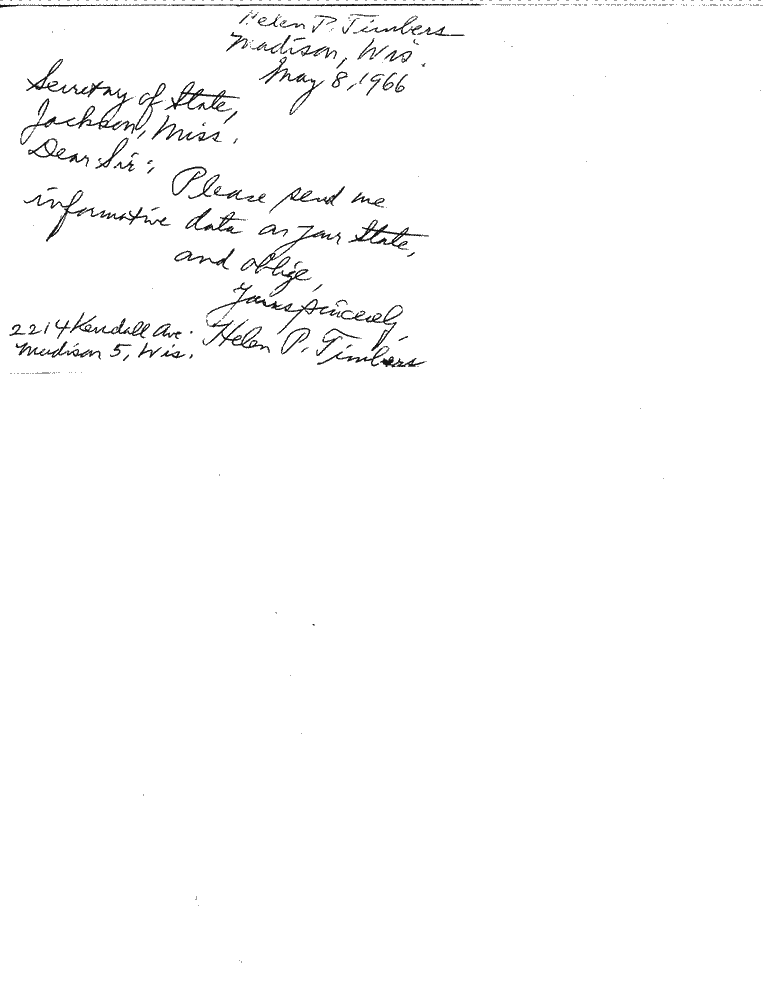 Helen P. Timbers
Madison, Wis.
May 8, 1966
Secretary of State,
Jackson, Miss.
Dear Sir:,
Please send me
informative data on your State,
and oblige,
Yours sincerely,
Helen P. Timbers
2214 Kendall Ave.
Madison 5, Wis.